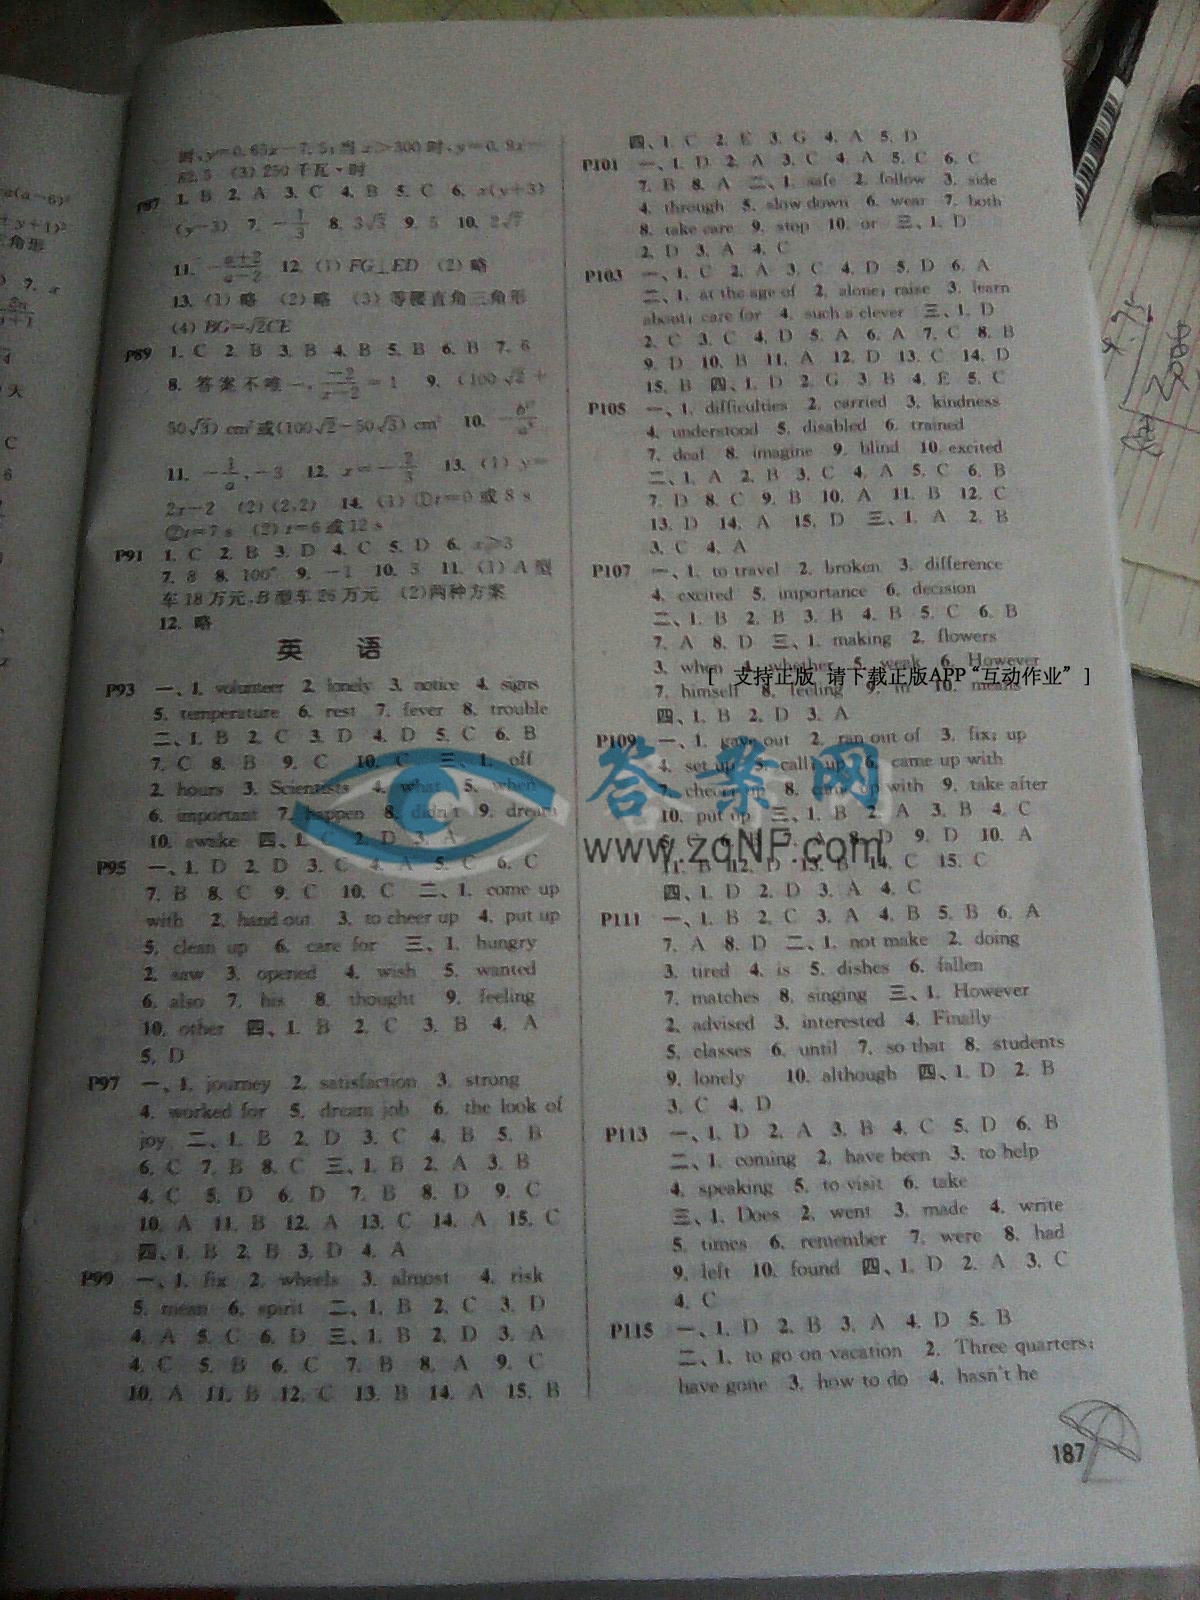 时,y=0.65x-7.5;当x≥300时,y=0.8x-
82.5 (3)250千瓦·时
P87 1. B 2. A 3. C 4. B 5. C 6. x(y+3)
(y-3) 7. -1/3 8. 3√3 9. 5 10. 2√7
11. -(a+2)/(a-2) 12. (1)FG⊥ED (2)略
13. (1)略 (2)略 (3)等腰直角三角形
(4)BG=√2CE
P89 1. C 2. B 3. B 4. B 5. B 6. B 7. 6
8. 答案不唯一, -2/(x-2) =1 9. (100√2+
50√3)cm²或(100√2-50√3)cm² 10.
11. -1/a, -3 12. x=-2/3 13. (1)y=
2x-2 (2)(2,2) 14. (1)①t=0或8 s
②t=7 s (2)t=6或12 s
P91 1. C 2. B 3. D 4. C 5. D 6. x≥3
7. 8 8. 100° 9. -1 10. 3 11. (1)A型
车18万元,B型车26万元 (2)两种方案
12. 略
英 语
P93 一、1. volunteer 2. lonely 3. notice 4. signs
5. temperature 6. rest 7. fever 8. trouble
二、1. B 2. C 3. D 4. D 5. C 6. B
7. C 8. B 9. C 10. C 三、1. off
2. hours 3. Scientists 4. what 5. when
6. important 7. happen 8. didn't 9. dream
10. awake 四、1. C 2. D 3. A
P95 一、1. D 2. D 3. C 4. A 5. C 6. C
7. B 8. C 9. C 10. C 二、1. come up
with 2. hand out 3. to cheer up 4. put up
5. clean up 6. care for 三、1. hungry
2. saw 3. opened 4. wish 5. wanted
6. also 7. his 8. thought 9. feeling
10. other 四、1. B 2. C 3. B 4. A
5. D
P97 一、1. journey 2. satisfaction 3. strong
4. worked for 5. dream job 6. the look of
joy 二、1. B 2. D 3. C 4. B 5. B
6. C 7. B 8. C 三、1. B 2. A 3. B
4. C 5. D 6. D 7. B 8. D 9. C
10. A 11. B 12. A 13. C 14. A 15. C
四、1. B 2. B 3. D 4. A
P99 一、1. fix 2. wheels 3. almost 4. risk
5. mean 6. spirit 二、1. B 2. C 3. D
4. A 5. C 6. D 三、1. B 2. D 3. A
4. C 5. B 6. C 7. B 8. A 9. C
10. A 11. B 12. C 13. B 14. A 15. B
四、1. C 2. E 3. G 4. A 5. D
P101 一、1. D 2. A 3. C 4. A 5. C 6. C
7. B 8. A 二、1. safe 2. follow 3. side
4. through 5. slow down 6. wear 7. both
8. take care 9. stop 10. or 三、1. D
2. D 3. A 4. C
P103 一、1. C 2. A 3. C 4. D 5. D 6. A
二、1. at the age of 2. alone; raise 3. learn
about; care for 4. such a clever 三、1. D
2. C 3. C 4. D 5. A 6. A 7. C 8. B
9. D 10. B 11. A 12. D 13. C 14. D
15. B 四、1. D 2. G 3. B 4. E 5. C
P105 一、1. difficulties 2. carried 3. kindness
4. understood 5. disabled 6. trained
7. deaf 8. imagine 9. blind 10. excited
二、1. A 2. B 3. C 4. A 5. C 6. B
7. D 8. C 9. B 10. A 11. B 12. C
13. D 14. A 15. D 三、1. A 2. B
3. C 4. A
P107 一、1. to travel 2. broken 3. difference
4. excited 5. importance 6. decision
二、1. B 2. B 3. B 4. B 5. C 6. B
7. A 8. D 三、1. making 2. flowers
3. when 4. whether 5. weak 6. However
[ 支持正版 请下载正版APP“互动作业” ]
7. himself 8. feeling 9. in 10. means
四、1. B 2. D 3. A
P109 一、1. gave out 2. ran out of 3. fix; up
4. set up 5. call; up 6. came up with
7. cheer; up 8. up with 9. take after
10. put up 三、1. B 2. A 3. B 4. C
5. C 6. 7. A 8. D 9. D 10. A
11. B 12. D 13. B 14. C 15. C
四、1. D 2. D 3. A 4. C
答案网
www.zqNF.com
P111 一、1. B 2. C 3. A 4. B 5. B 6. A
7. A 8. D 二、1. not make 2. doing
3. tired 4. is 5. dishes 6. fallen
7. matches 8. singing 三、1. However
2. advised 3. interested 4. Finally
5. classes 6. until 7. so that 8. students
9. lonely 10. although 四、1. D 2. B
3. C 4. D
P113 一、1. D 2. A 3. B 4. C 5. D 6. B
二、1. coming 2. have been 3. to help
4. speaking 5. to visit 6. take
三、1. Does 2. went 3. made 4. write
5. times 6. remember 7. were 8. had
9. left 10. found 四、1. D 2. A 3. C
4. C
P115 一、1. D 2. B 3. A 4. D 5. B
二、1. to go on vacation 2. Three quarters;
have gone 3. how to do 4. hasn't he
187